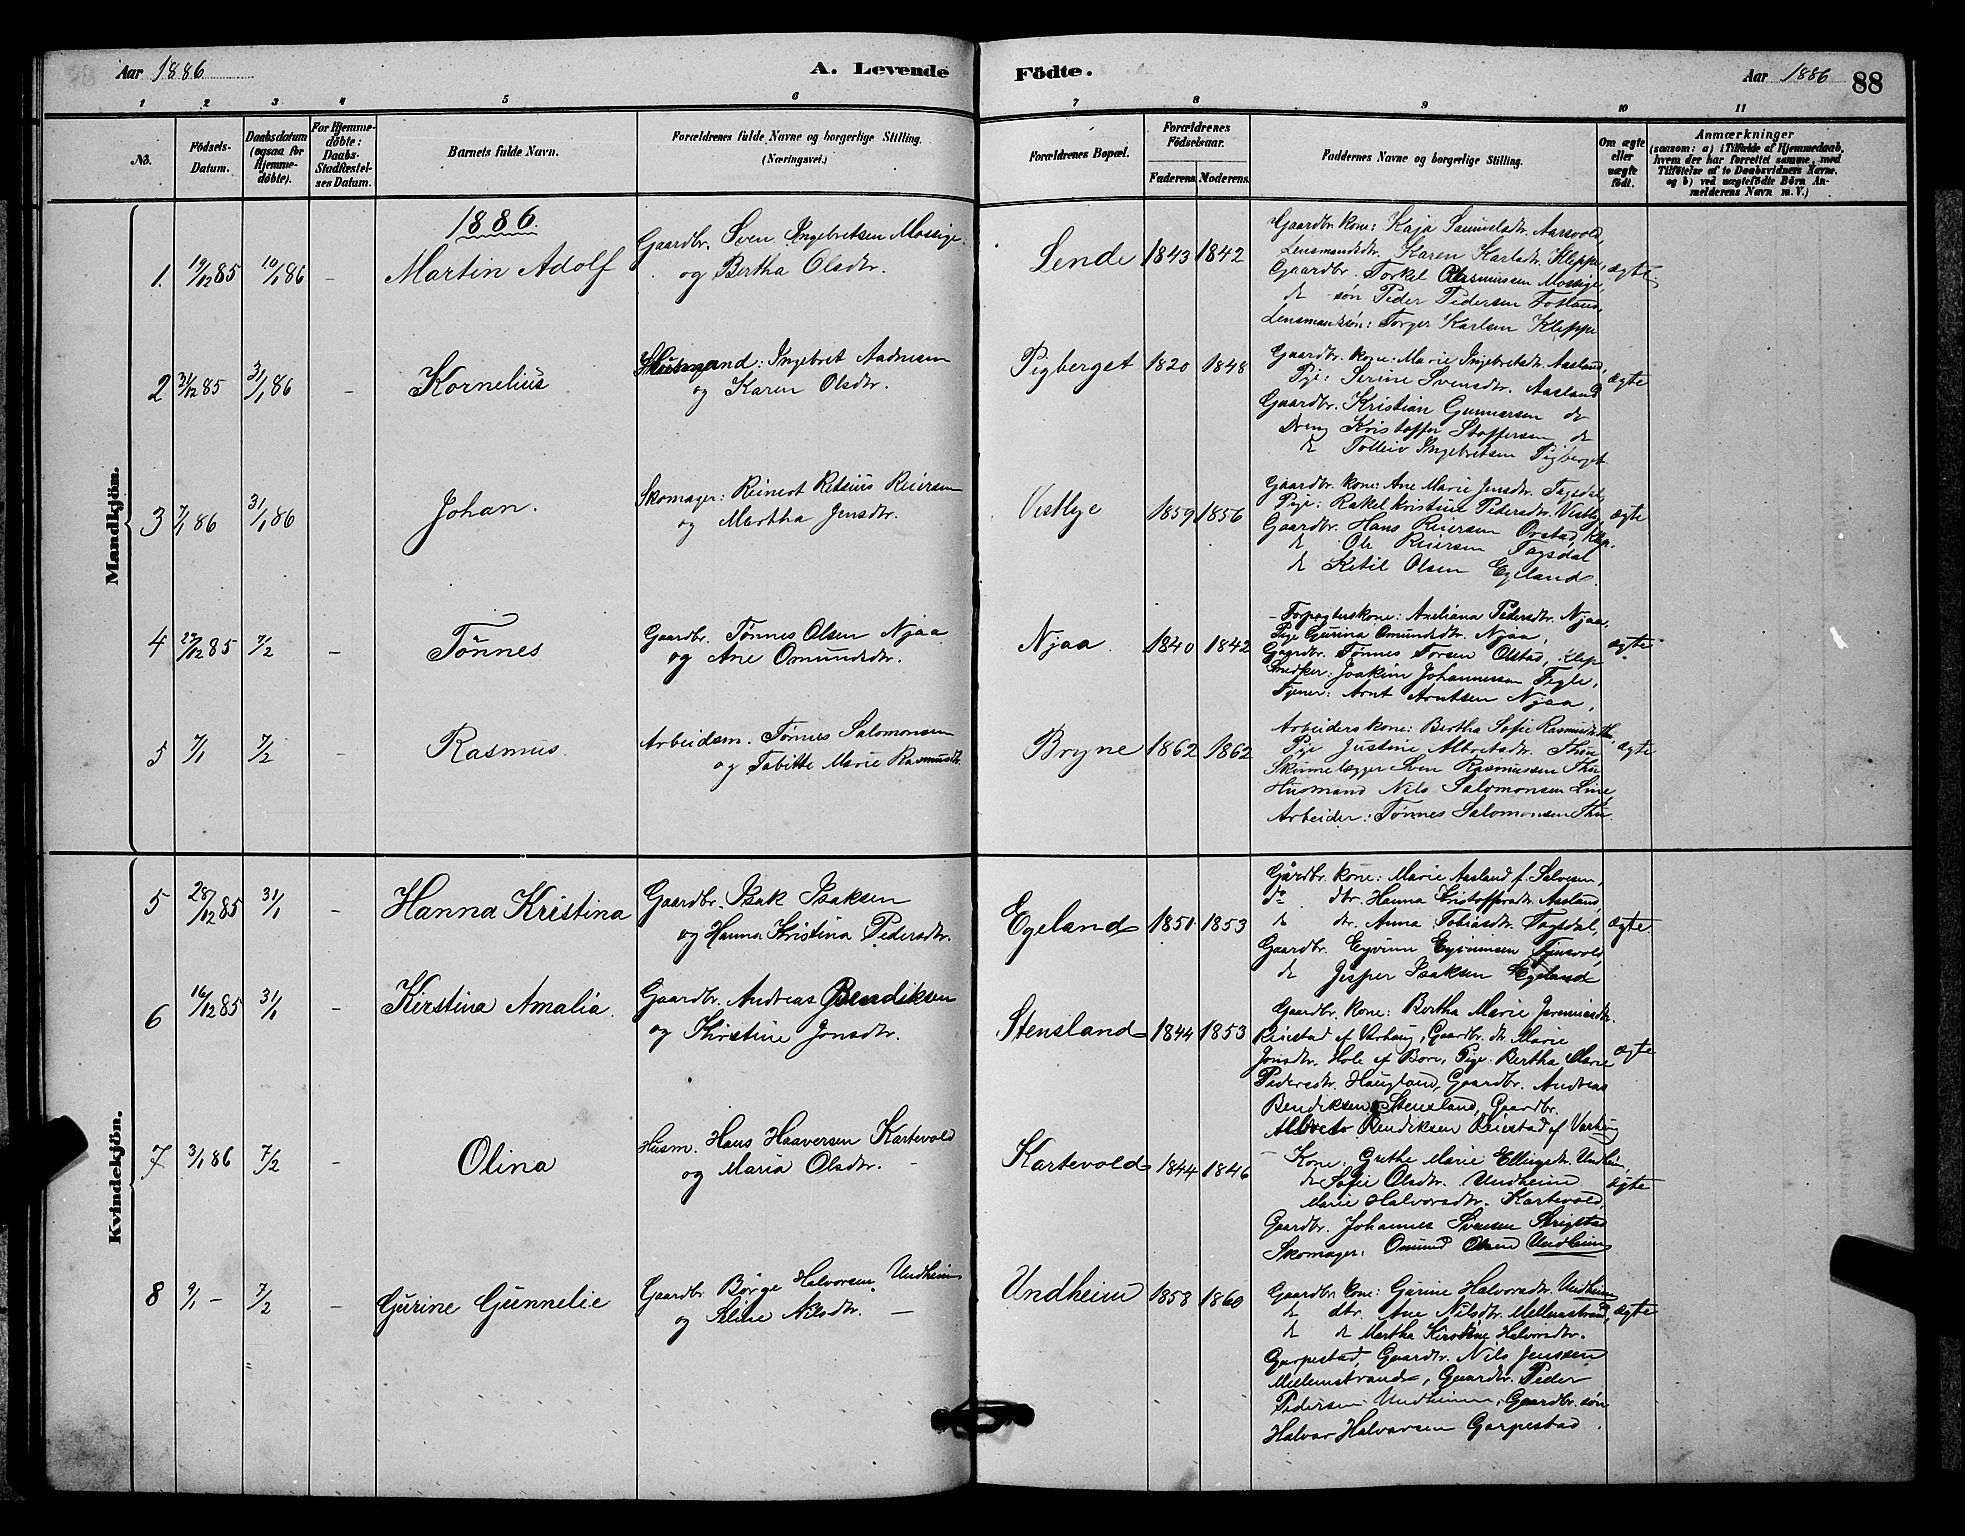 Aar 1886
A. Levende
Födte.
Aar 1886
88
1 2 3 4 5 6 7 8 9 10 11
No.
Födsels-
Datum.
Daabsdatum
(ogsaa for
Hjemme-
döbte).
For Hjemme-
döbte:
Daabs-
Stadfæstel-
ses Datum.
Barnets fulde Navn.
Forældrenes fulde Navne og borgerlige Stilling.
(Næringsvei.)
Forældrenes Bopæl.
Forældrenes
Födselsaar.
Faderens Moderens
Faddernes Navne og borgerlige Stilling.
Om ægte
eller
uægte
født.
Anmærkninger
(saasom: a) i Tilfælde af Hjemmedaab,
hvem der har forrettet samme, med
Tilföielse af to Daabsvidners Navne,
og b) ved uægtefödte Börn An-
melderens Navn m. V.)
Mandkjön.
1886.
1. 19/12 85 10/1 86 - Martin Adolf
Gaardbr. Sven Ingebretsen Mossige
og Bertha Olsdtr.
Lende 1843 1842
Gaardbr. kone: Kaja Samuelsdr. Aarsvold,
Lensmandsdtr. Karen Karlsdtr. Kleppe,
Gaardbr. Torkel Rasmussen Mossige,
do søn Peder Pedersen Fotland,
Lensmandssøn: Torger Karlsen Kleppe
ægte
2 31/12 85 31/1 86 - Kornelius
Husmand: Ingebret Aadnesen
og Karen Olsdtr.
Pigberget 1820 1848
Gaardbr. kone: Marie Ingebretsdtr. Aasland,
Pige: Serine Svensdtr. Aasland
Gaardbr. Kristian Gunnarsen do
Dreng Kristoffer Stoffersen do
do Tolleiv Ingebretsen Pigberget
ægte
3 7/1 86 31/1 86 Johan.
Skomager: Reinert Retsius Reiersen
og Martha Jensdtr.
Vestlye 1859 1856
Gaardbr. kone: Ane Marie Jensdtr. Tagsdal,
Pige: Rakel Kristine Pedersdtr. Vestly,
Gaardbr. Hans Reiersen Orstad, Klep.
do Ole Reiersen Tagsdal
do Ketil Olsen Egeland.
ægte
4 29/12 85 7/2 - Tönnes
Gaardbr. Tönnes Olsen Njaa
og Ane Omundsdtr.
Njaa 1840 1842
Forpagterskone: Axeliana Pedersdtr. Njaa,
Pige Gurina Omundsdtr. Njaa,
Gaardbr. Tönnes Torsen Olstad, Klep
Snedker: Joakim Johannessen Tegle,
Tjener: Arnt Arntsen Njaa,
ægte
5 7/1 7/2 - Rasmus.
Arbeidsm. Tönnes Salomonsen
og Tabitte Marie Rasmusdtr.
Bryne 1862 1862
Arbeiderskone: Bertha Sofie Rasmusdtr.
Pige Justine Albretsdtr. Thu
Skinnelægger Sven Rasmussen Thu
Husmand Nils Salomonsen Line
Arbeider: Tönnes Salomonsen Thu.
ægte
Kvindekjön.
5 28/12 85 31/1 - Hanna Kristina
Gaardbr. Isak Isaksen
og Hanna Kristina Pedersdtr.
Egeland 1851 1853
Gårdbr. kone: Marie Aasland f. Salvesen,
do dtr. Hanna Kristoffersdtr. Aasland
do dr. Anna Tobiasdtr. Tagsdal,
Gaardbr. Eyvinn Eyvinnsen Tjensvold,
do Jesper Isaksen Egeland
ægte
6 16/12 85 31/1 - Kirstina Amalia.
Gaardbr. Andreas Bendiksen
og Kirstine Jonsdtr.
Stensland 1844 1853
Gaardbr. kone: Bertha Marie Jeremiasdtr.
Reiestad af Varhaug, Gaardbr. dr Marie
Jonsdtr. Hole af Bore, Pige: Bertha Marie
Pedersdtr. Haugland, Gaardbr. Andreas
Bendiksen Stensland, Gaardbr.
Albret Bendiksen Reiestad af Varhaug
ægte
7 3/1 86 7/2 - Olina
Husm. Hans Haaversen Kartevold
og Maria Olsdtr. -
Kartevold 1844 1846
- Kone: Grethe Marie Ellingsdr. Undheim,
do Sofie Olsdtr. Undheim
Marie Halvorsdtr. Kartevold,
Gaardbr. Johannes Svensen Skrigstad
Skomager: Omund Olsen Undheim
ægte
8 9/1 - 7/2 - Gurine Gunnelie
Gaardbr. Børge Halvorsen Undheim
og Seline Nilsdtr. -
Undheim 1858 1860
Gaardbr. kone: Gurine Halvorsdtr. Undheim
do dtr. Ane Nilsdtr. Mellemstrand,
do do Martha Kirstine Halvorsdtr.
Garpestad, Gaardbr. Nils Jenssen
Mellemstrand, Gaardbr. Peder
Pedersen Undheim, Gaardbr. søn
Halvor Halvorsen Garpestad.
ægte